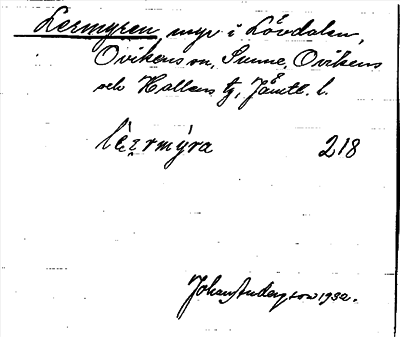 Lermyren, myr i Lövdalen,
Ovikens sn, Sunne, Ovikens
och Hallens tg, Jämtl. l.
lèrmýra 218
Johan Anderson 1932.